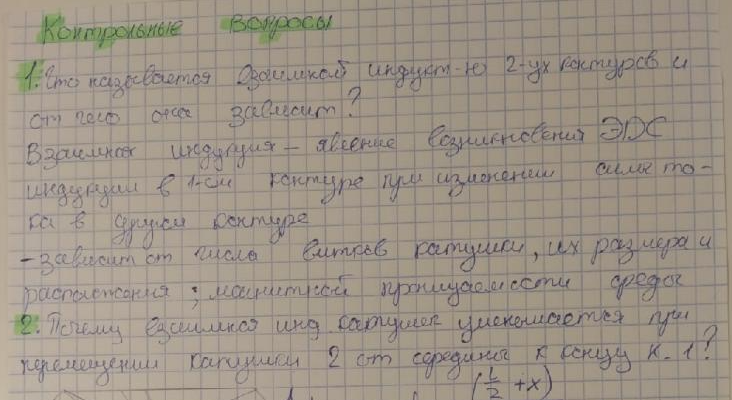 Контрольные вопросы
1. Что называется взаимной индукт-ю 2-ух контуров и
от чего она зависит?
Взаимная индукция – явление возникновения ЭДС
индукции в 1-ом контуре при изменении силы то-
ка в другом контуре
- зависит от числа витков катушки, их размера и
расположения; магнитной проницаемости среды
2. Почему взаимная инд катушек уменьшается при
перемещении катушки 2 от середины к концу к. 1?
(L/2 + x)